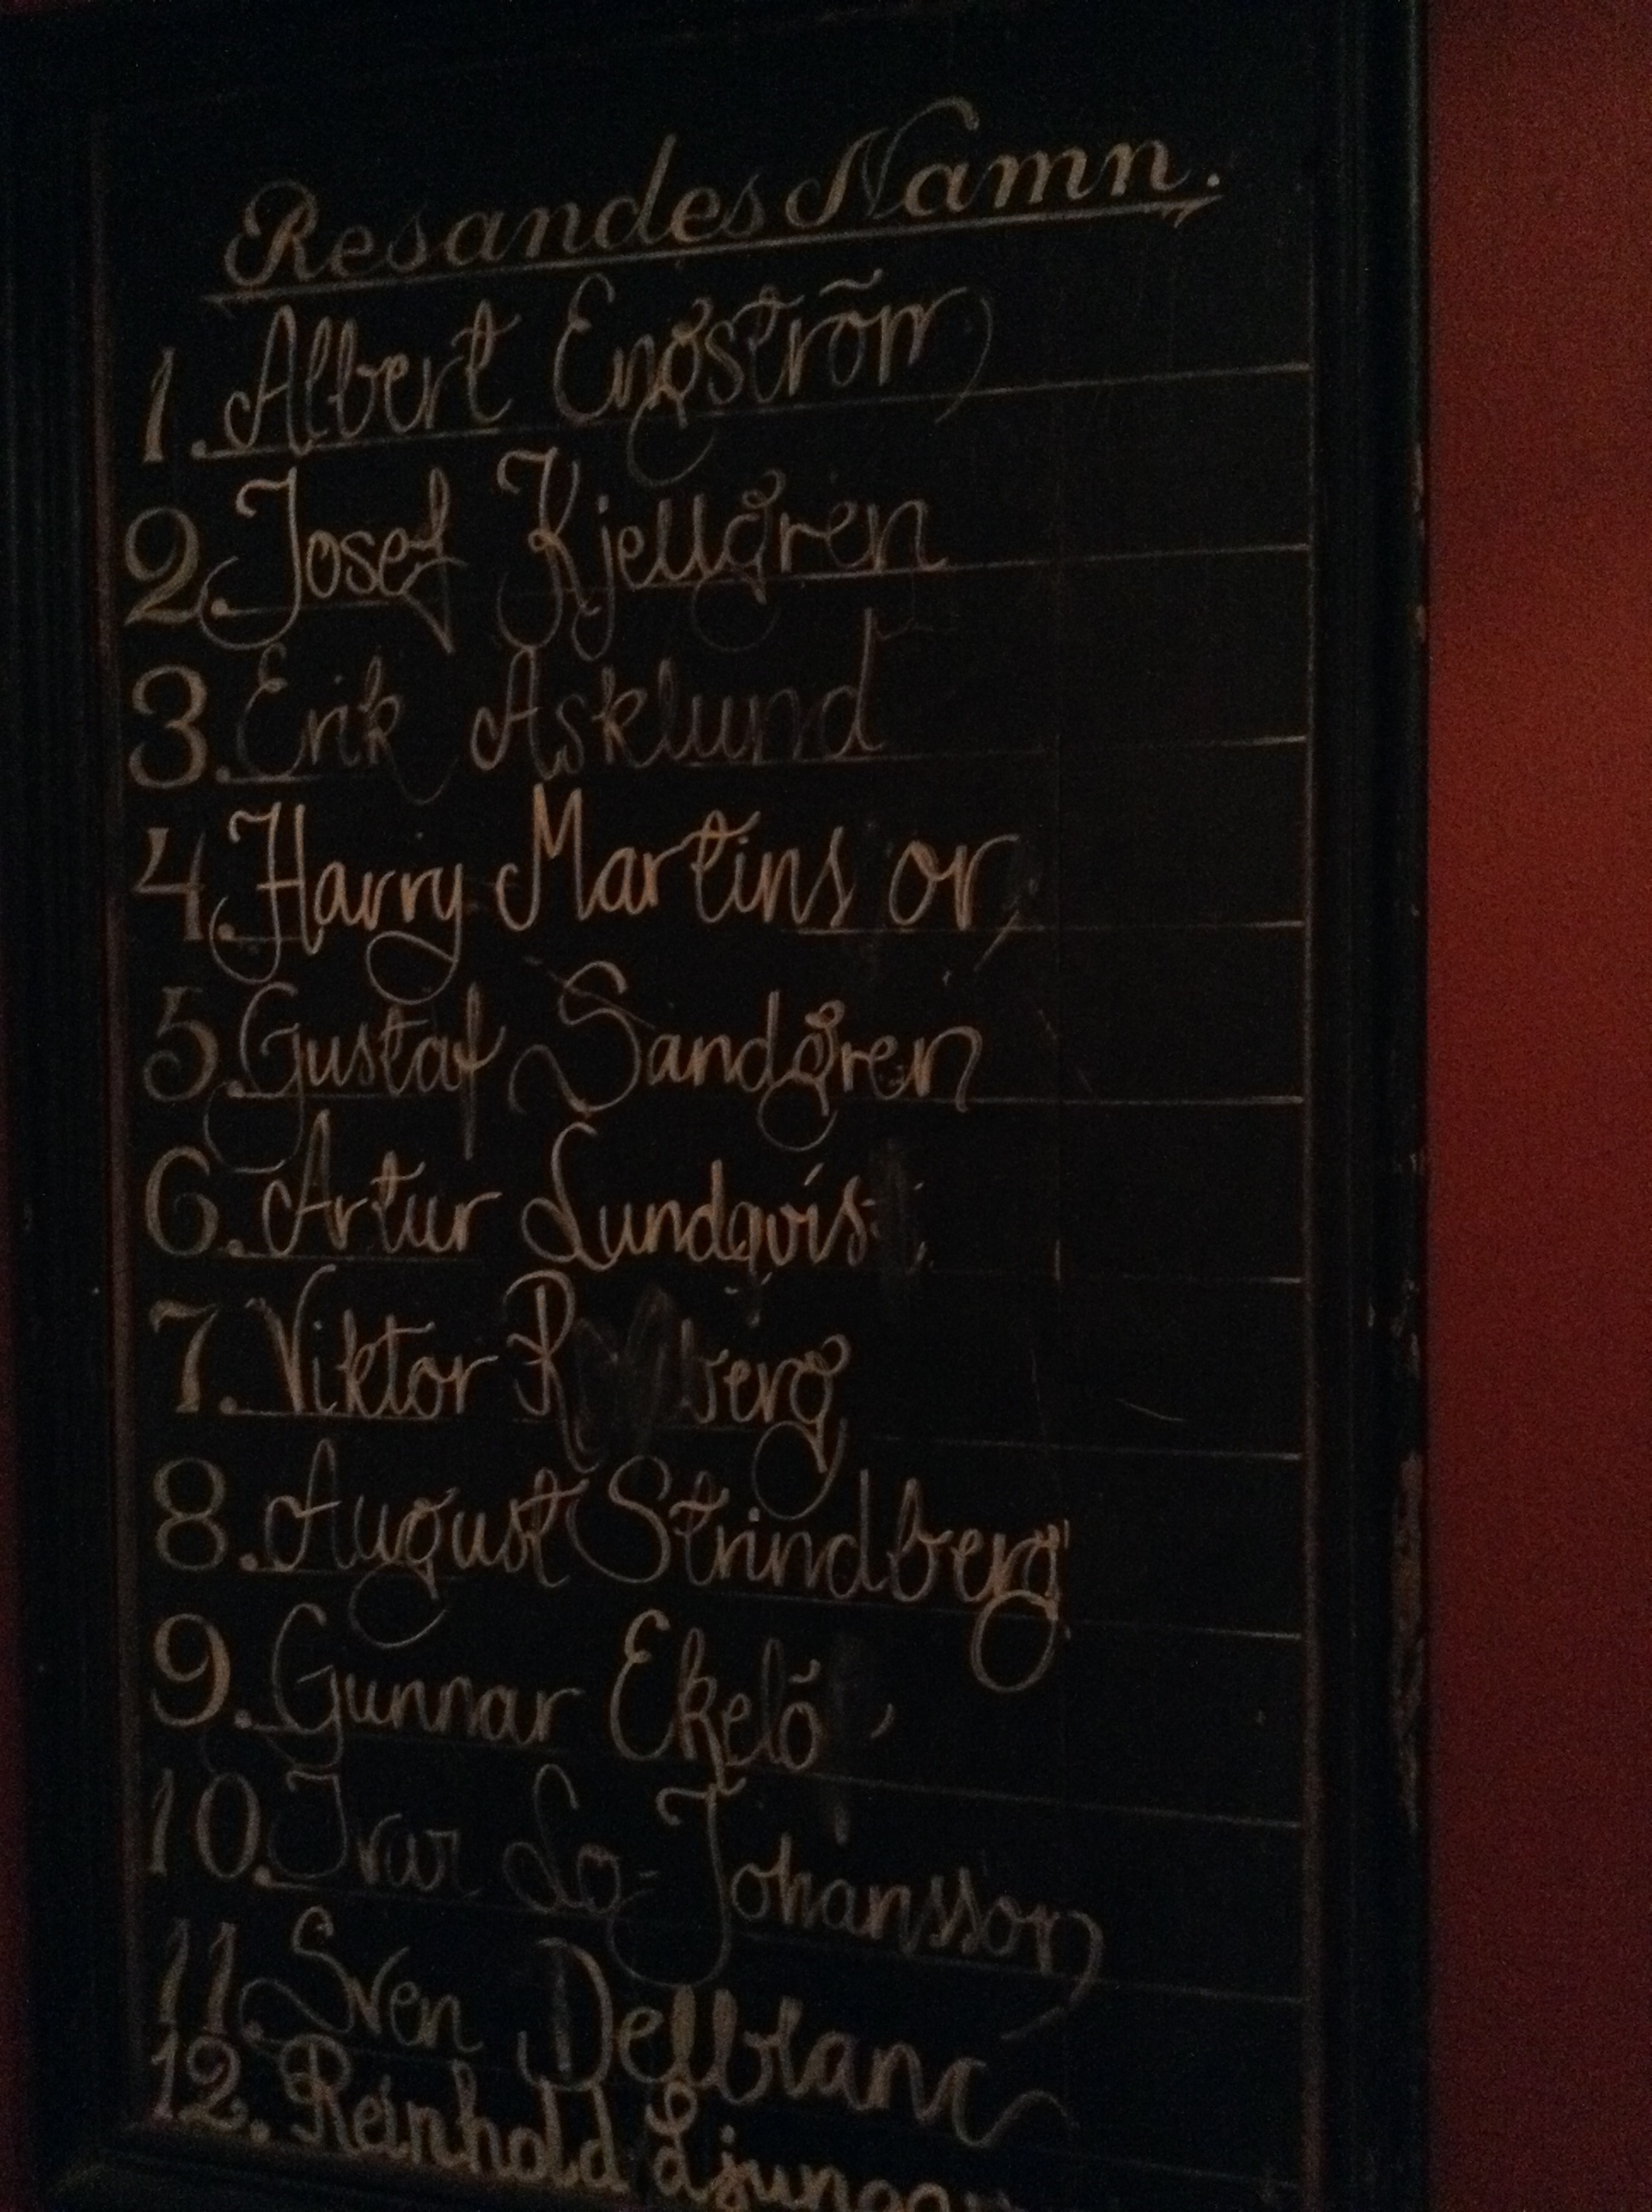 Resandes Namn.
1. Albert Engström
2. Josef Kjellgren
3. Erik Asklund
4. Harry Martinson
5. Gustaf Sandgren
6. Artur Lundqvis
7. Viktor
8. August Strindberg
9. Gunnar Ekelö
10. Ivar Lo-Johansson
11. Sven Dellblanc
12. Reinhold